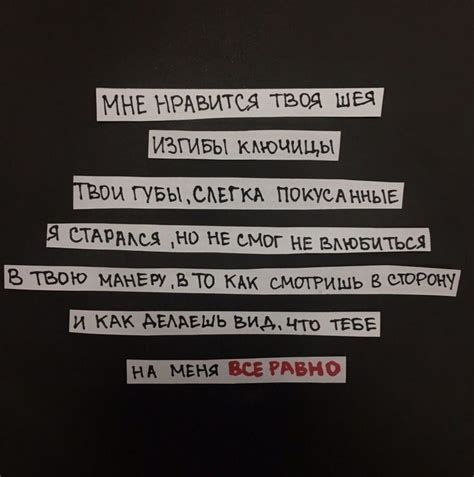 МНЕ НРАВИТСЯ ТВОЯ ШЕЯ
ИЗГИБЫ КЛЮЧИЦЫ
ТВОИ ГУБЫ, СЛЕГКА ПОКУСАННЫЕ
Я СТАРАЛСЯ, НО НЕ СМОГ НЕ ВЛЮБИТЬСЯ
В ТВОЮ МАНЕРУ, В ТО КАК СМОТРИШЬ В СТОРОНУ
И КАК ДЕЛАЕШЬ ВИД, ЧТО ТЕБЕ
НА МЕНЯ ВСЕ РАВНО